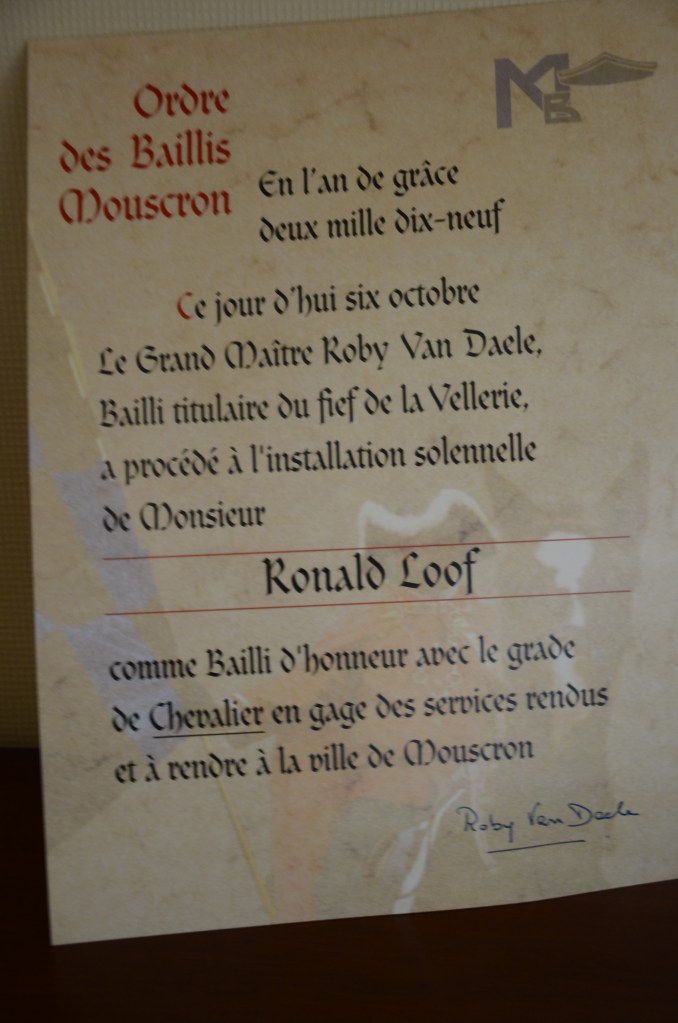 Ordre
des Baillis
Mouscron
MB
En l'an de grâce
deux mille dix-neuf
Ce jour d'hui six octobre
Le Grand Maître Roby Van Daele,
Bailli titulaire du fief de la Vellerie,
a procédé à l'installation solennelle
de Monsieur
Ronald Loof
comme Bailli d'honneur avec le grade
de Chevalier en gage des services rendus
et à rendre à la ville de Mouscron
Roby Van Daele